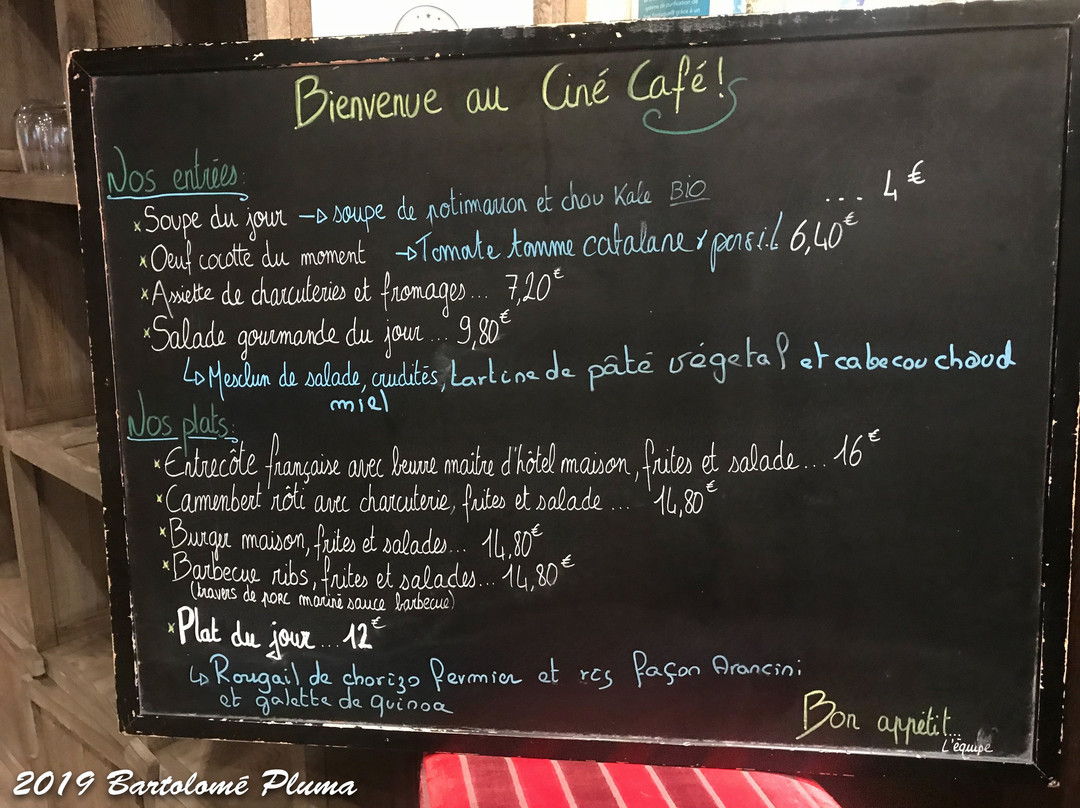 Bienvenue au Ciné Café!
Nos entrées:
* Soupe du jour → soupe de potimarron et chou Kale BIO ... 4€
* Oeuf cocotte du moment → Tomate tomme catalane persil 6,40€
* Assiette de charcuteries et fromages... 7,20€
* Salade gourmande du jour ... 9,80€
↳ Mesclun de salade, crudités, tartine de pâté végétal et cabecou chaud
miel
Nos plats:
* Entrecôte française avec beurre maître d'hôtel maison, frites et salade... 16€
* Camembert rôti avec charcuterie, frites et salade ... 14,80€
* Burger maison, frites et salades... 14,80€
* Barbecue ribs, frites et salades... 14,80€
(travers de porc mariné sauce barbecue)
* Plat du jour ... 12€
↳ Rougail de chorizo fermier et ris façon Arancini
et galette de quinoa
Bon appétit...
L'équipe
2019 Bartolomé Pluma